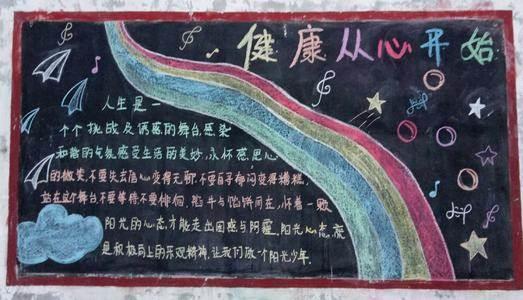 健康从心开始
人生是一
个个挑战及诱惑的舞台感染
和谐的气氛感受生活的美妙,永怀感恩心
的微笑,不要失去信心变得无聊.不要自寻郁闷变得糟糕,
站在这个舞台不要等待不要徘徊,陷井与馅饼同在,怀着一颗
阳光的心态,才能走出困惑与阴霾,阳光心态,就
是积极向上的乐观精神,让我们做一个阳光少年.